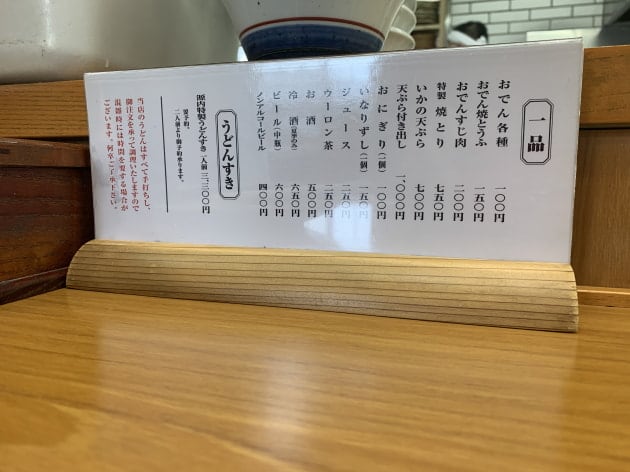 一品
おでん各種 一〇〇円
おでん焼とうふ 一五〇円
おでんすじ肉 二〇〇円
特製 焼とり 七五〇円
いかの天ぷら 七〇〇円
天ぷら付き出し 一、〇〇〇円
おにぎり(一個) 一〇〇円
いなりずし(一個) 一五〇円
ジュース 二五〇円
ウーロン茶 二五〇円
お酒 五〇〇円
冷酒(夏季のみ) 六五〇円
ビール(中瓶) 六〇〇円
ノンアルコールビール 四〇〇円
うどんすき
源内特製うどんすき一人前 三、三〇〇円
要予約、
二人前より御予約承ります。
当店のうどんはすべて手打ちし、
御注文を承って調理いたしますので
混雑時には時間を要する場合が
ございます。何卒ご了承下さい。